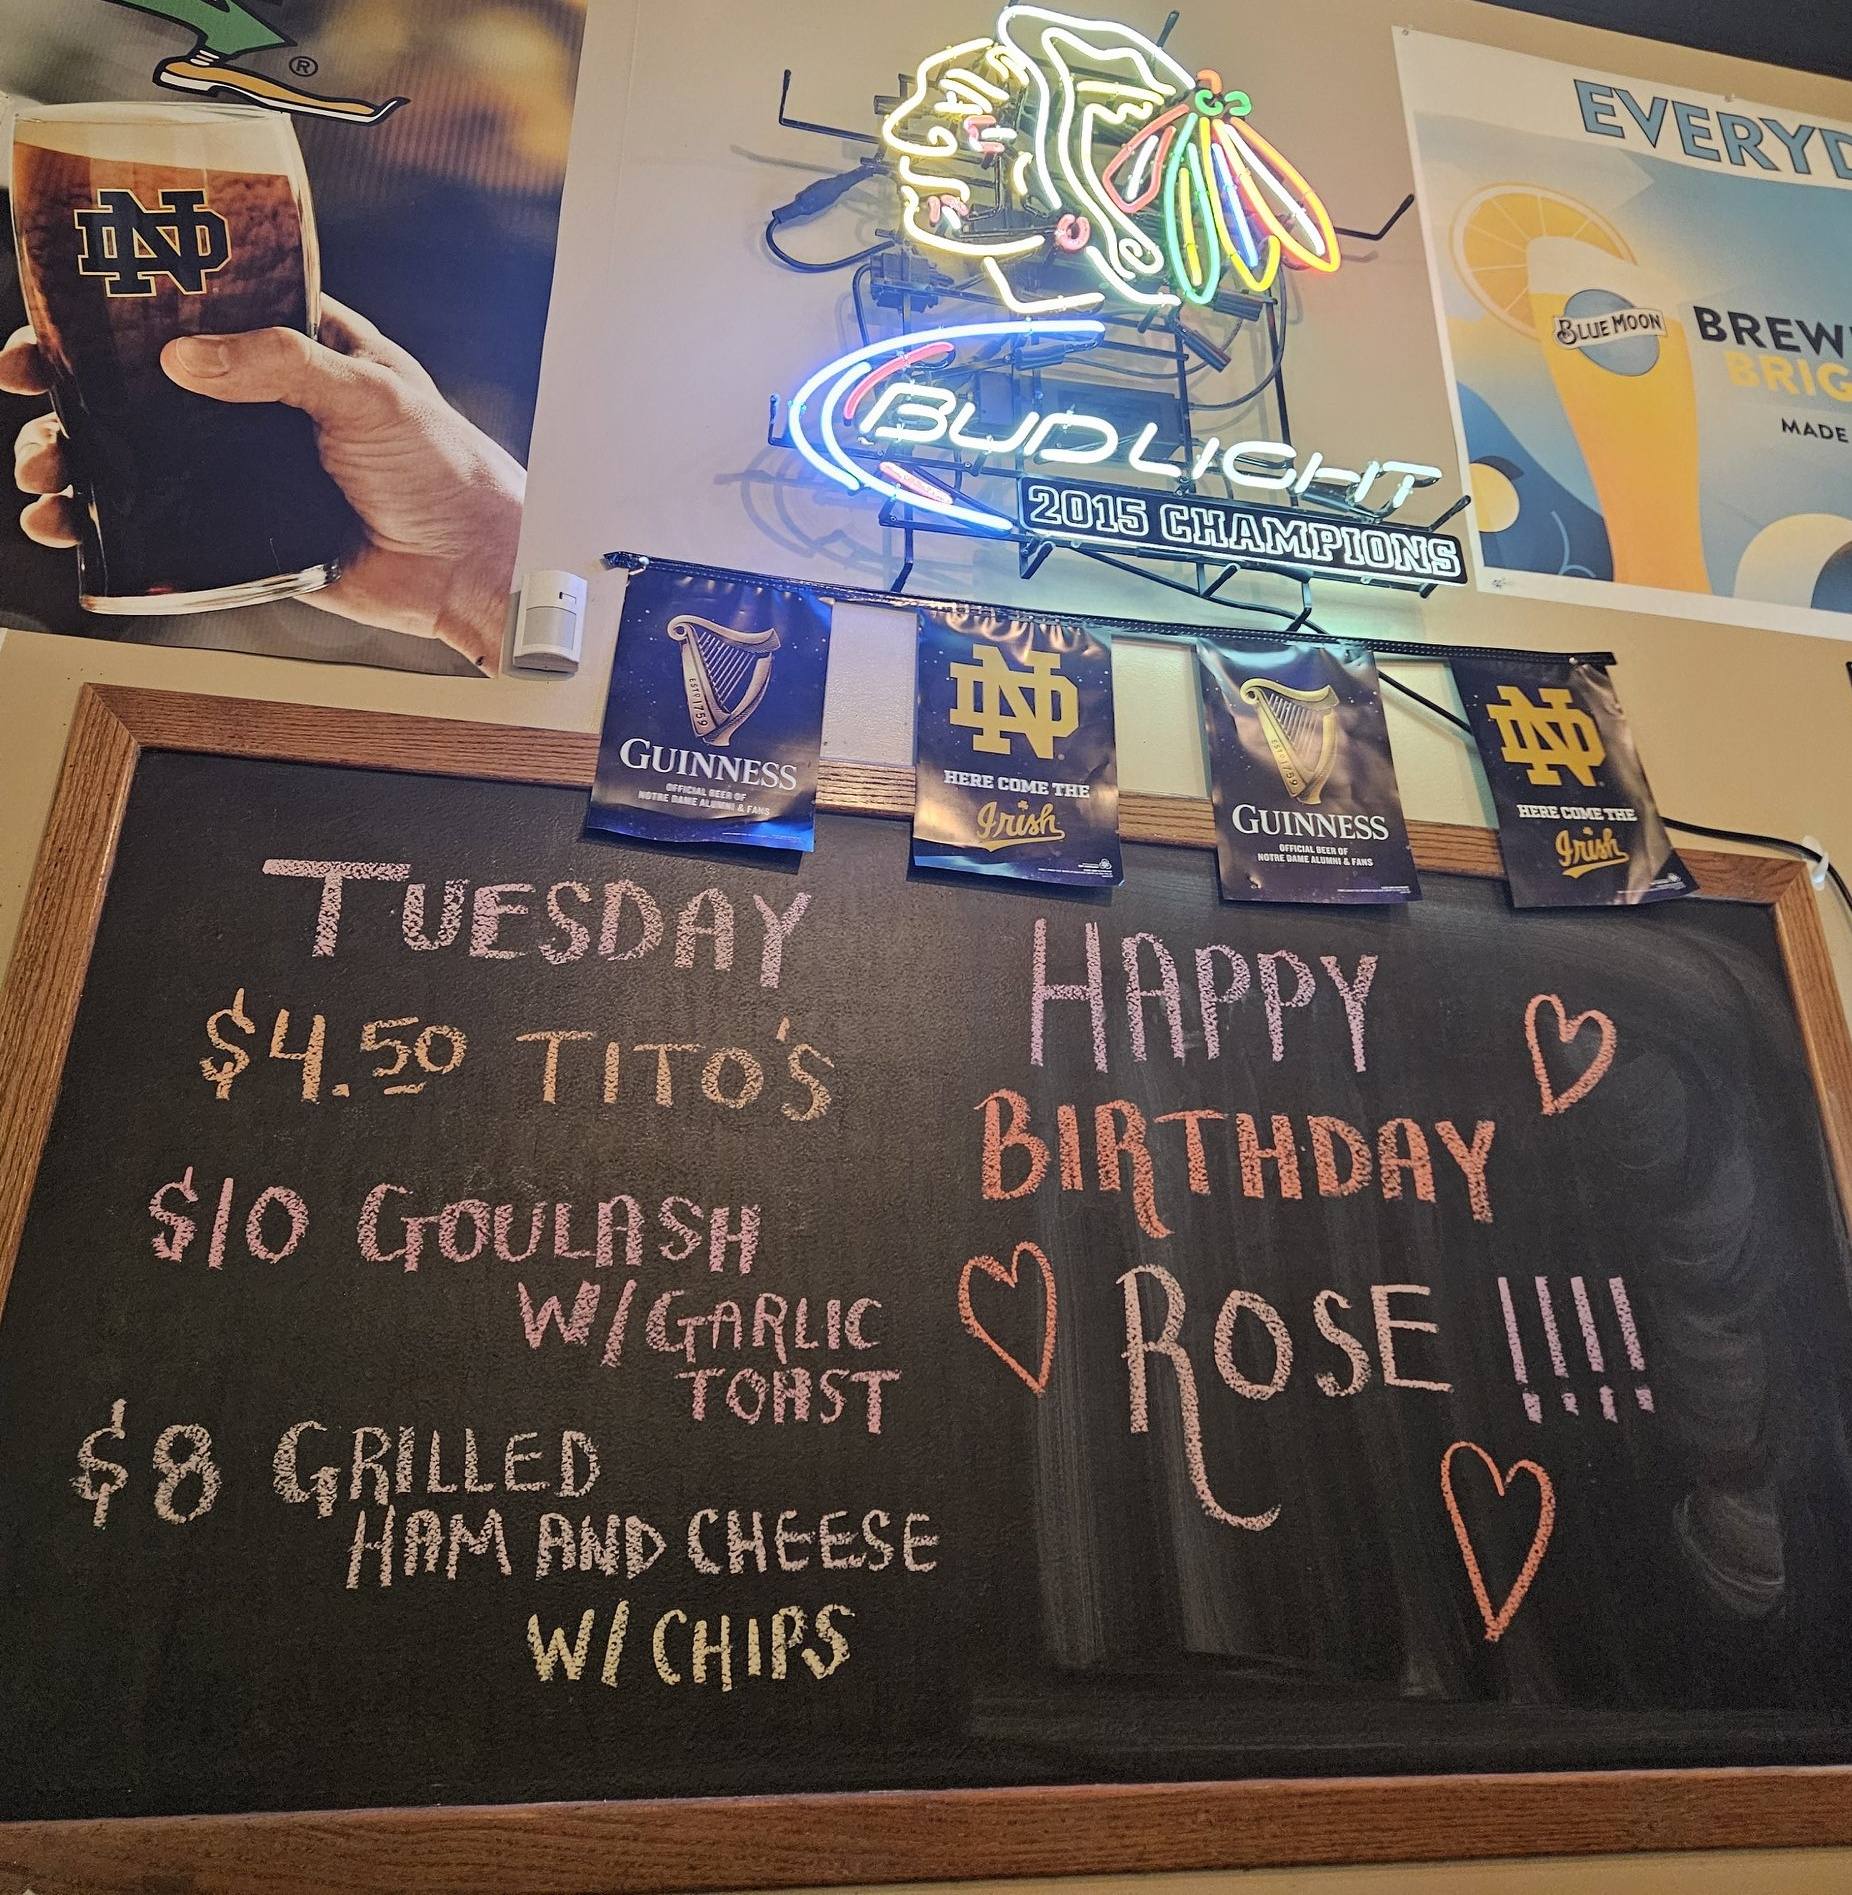 ®
ND
EVERYD
BLUE MOON
BREW
BRIG
MADE
BUD LIGHT
2015 CHAMPIONS
ESTD 1759
GUINNESS
OFFICIAL BEER OF
NOTRE DAME ALUMNI & FANS
ND
HERE COME THE
Irish
ESTD 1759
GUINNESS
OFFICIAL BEER OF
NOTRE DAME ALUMNI & FANS
ND
HERE COME THE
Irish
TUESDAY
$4.50 TITO'S
$10 GOULASH
W/GARLIC
TOAST
$8 GRILLED
HAM AND CHEESE
W/ CHIPS
HAPPY
BIRTHDAY
ROSE !!!!